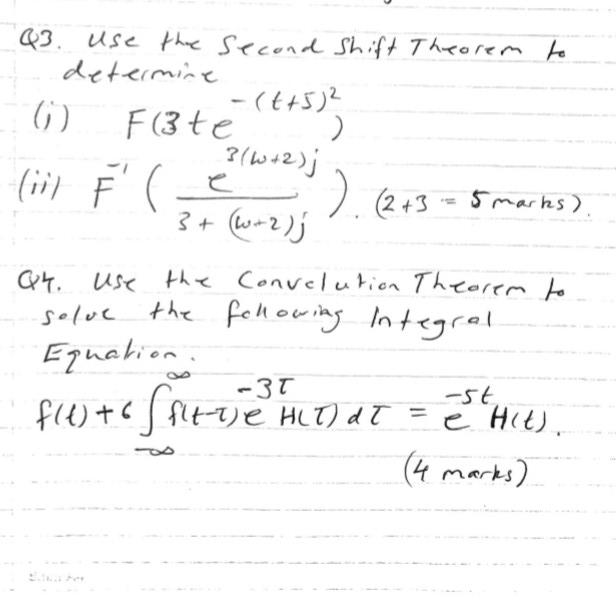 Q3. Use the Second Shift Theorem to
determine
(i) F(3te^{-(t+5)^2})
(ii) F^{-1} ( e^{3(ω+2)j} / (3 + (ω+2)j) ). (2+3 = 5 marks).
Q4. Use the Convolution Theorem to
solve the following Integral
Equation.
f(t) + 6 ∫_{-∞}^{∞} f(t-τ)e^{-3τ} H(τ) dτ = e^{-5t} H(t).
(4 marks)